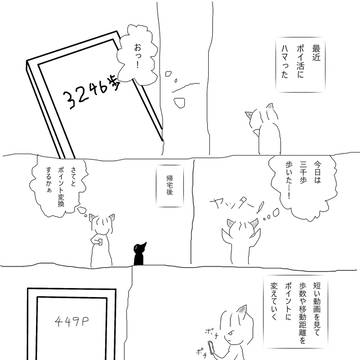 最近
ポイ活に
ハマった
おっ!
3246歩
今日は
三千歩
歩いたー!
ヤッター!
帰宅後
さてと
ポイント変換
するかぁ
短い動画を見て
歩数や移動距離を
ポイントに
変えていく
ポチ
ポチ
449P